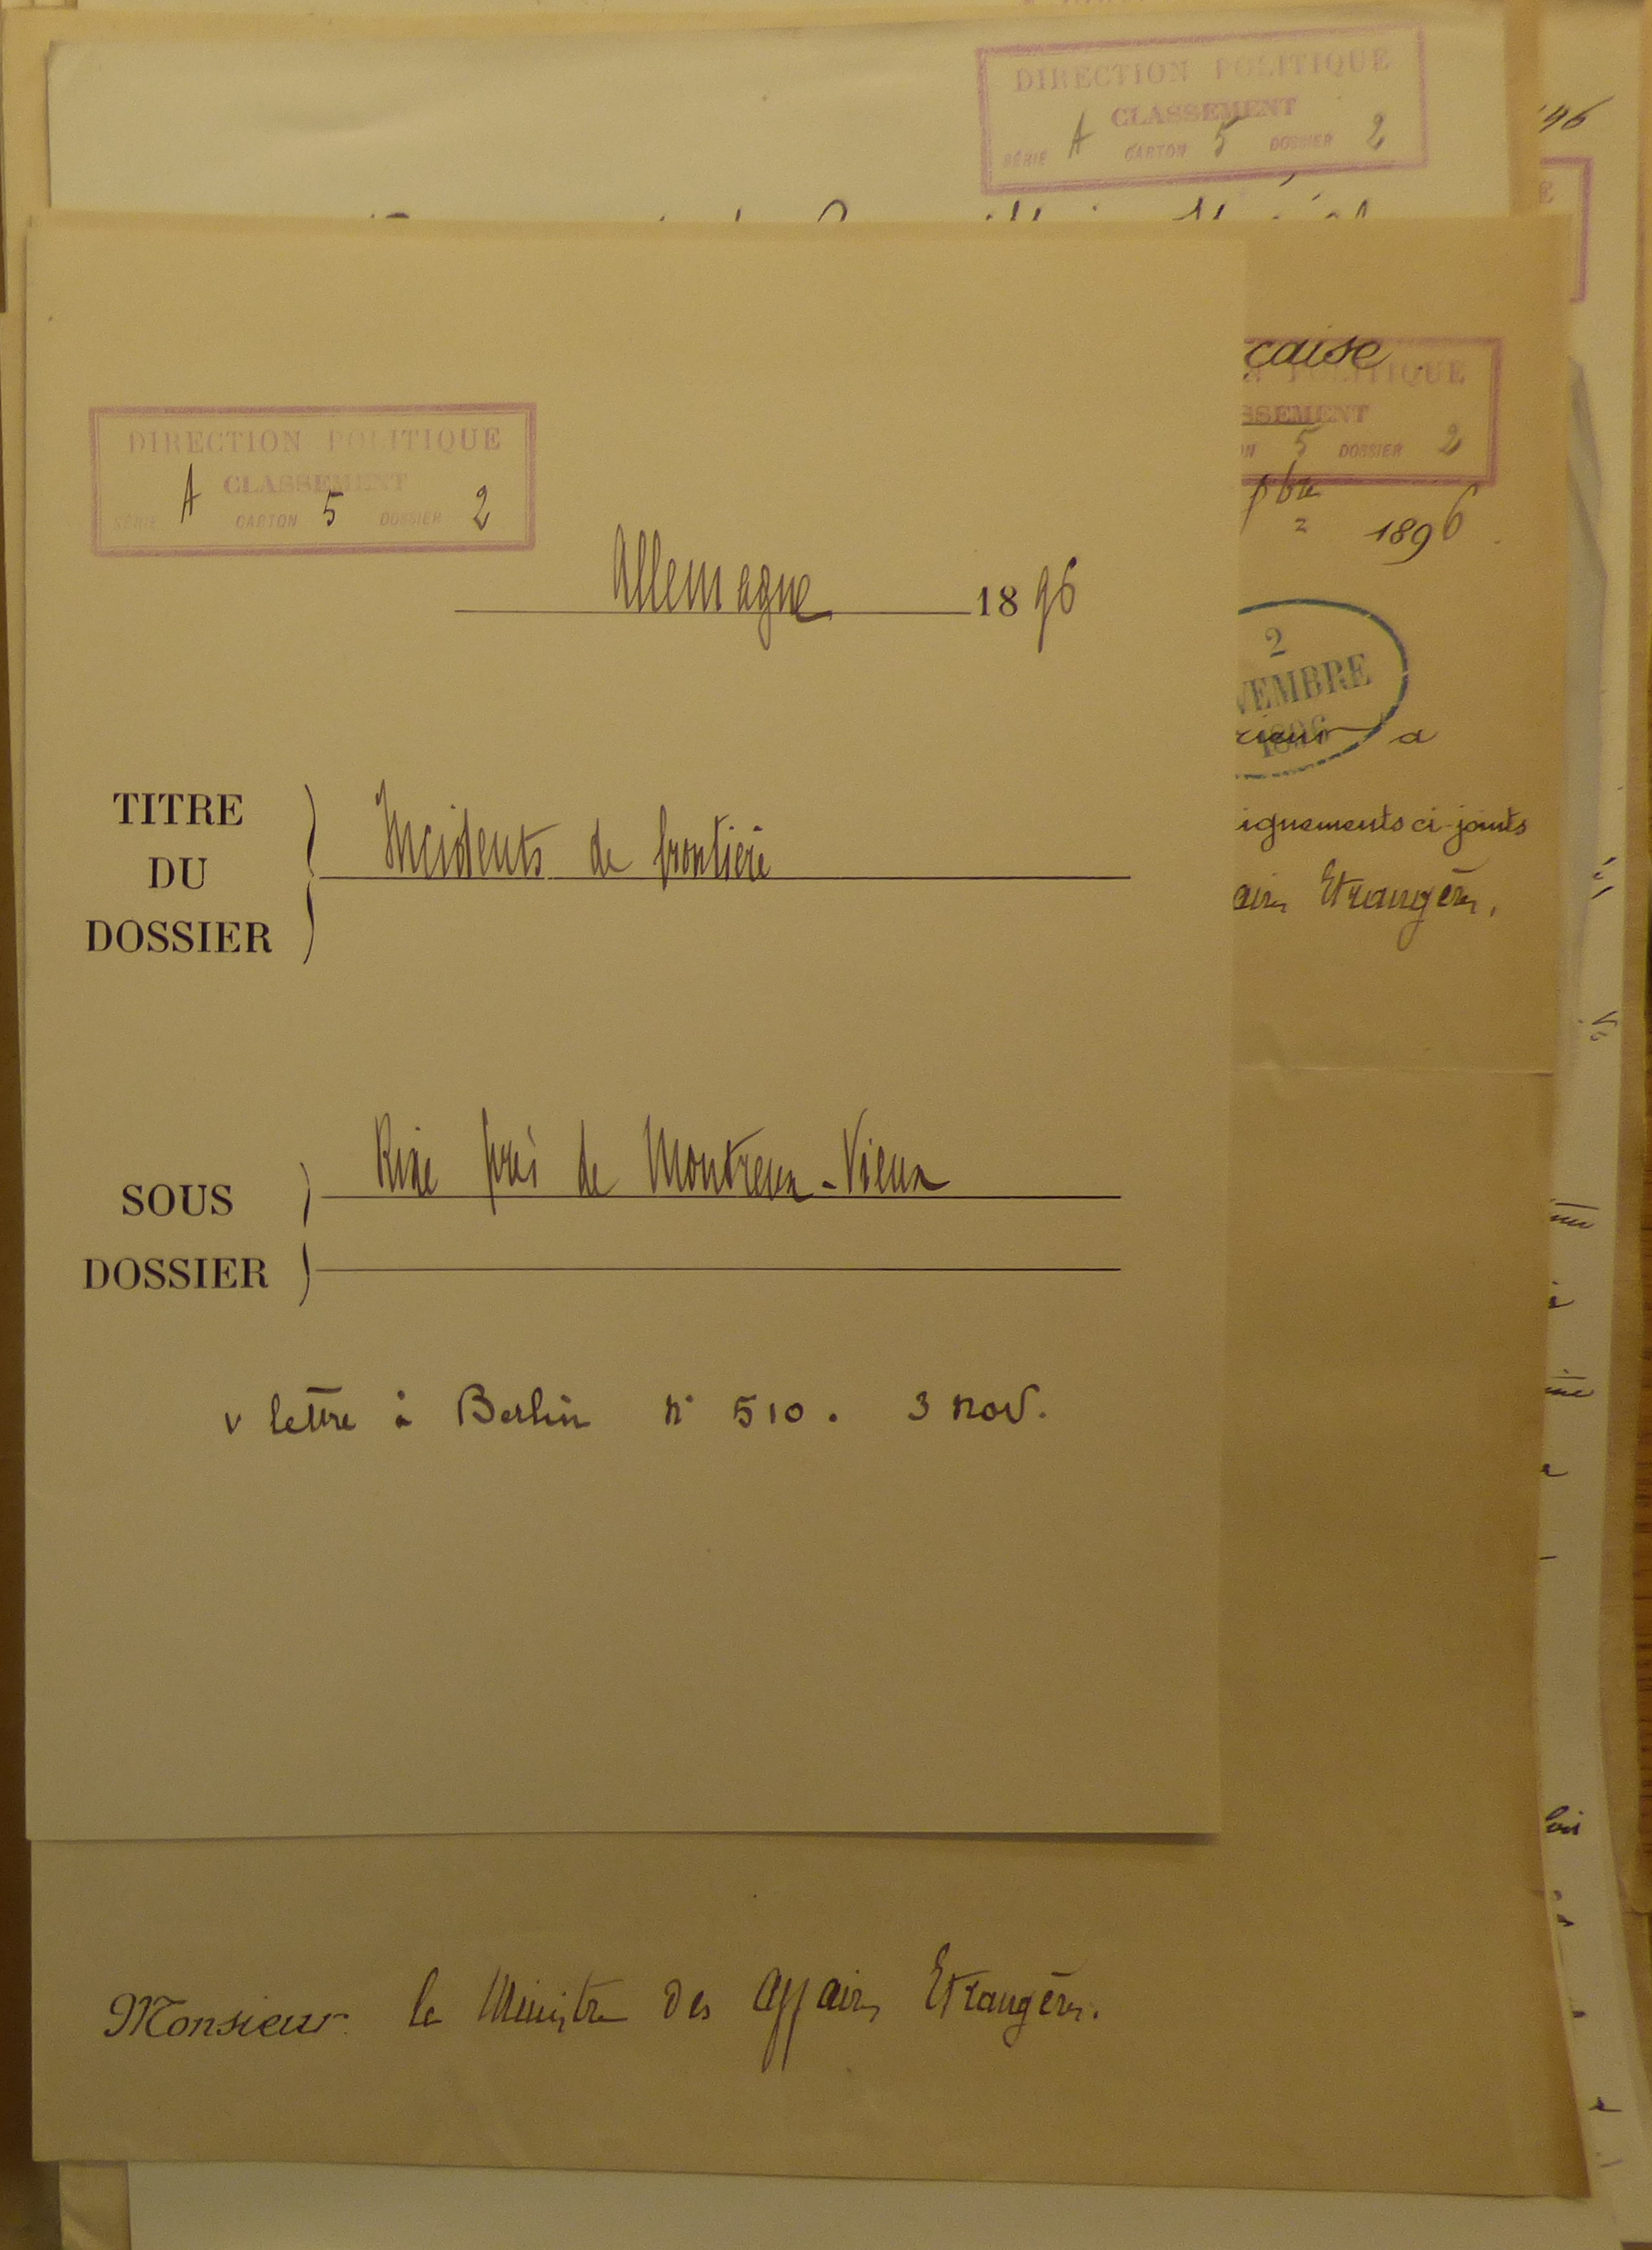 DIRECTION POLITIQUE
CLASSEMENT
SÉRIE A CARTON 5 DOSSIER 2
96
E
çaise
POLITIQUE
SSEMENT
ON 5 DOSSIER 2
1896
2
VEMBRE
1896
rieur a
ignements ci-joints
aires Etrangères,
DIRECTION POLITIQUE
CLASSEMENT
SÉRIE A CARTON 5 DOSSIER 2
Allemagne 1896
TITRE
DU
DOSSIER
Incidents de frontière
SOUS
DOSSIER
Rixe près de Montreux-Vieux
v lettre à Berlin n° 510. 3 nov.
Monsieur le Ministre des Affaires Etrangères.